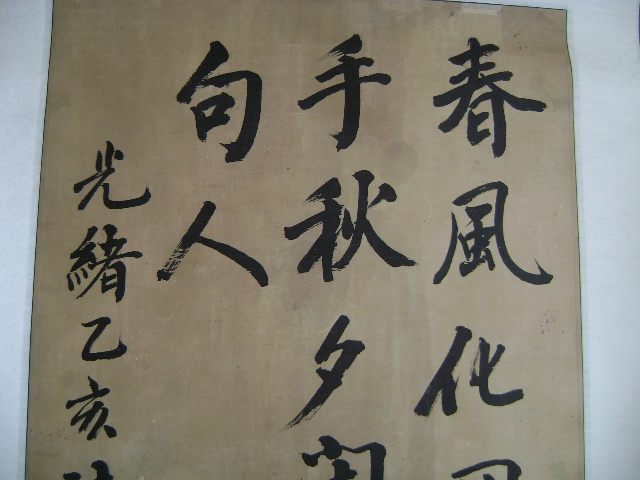 春風化
手秋夕
句人
光緒乙亥